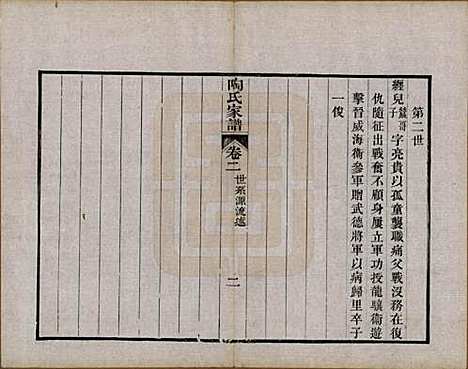 第二世
經兒鷲哥子字亮貴以孤童襲職痛父戰沒務在復
仇隨征出戰奮不顧身屢立軍功授龍驤衞遊
擊晉威海衞參軍贈武德將軍以病歸里卒子
一俊
陶氏家譜
卷二
世系源流述
二